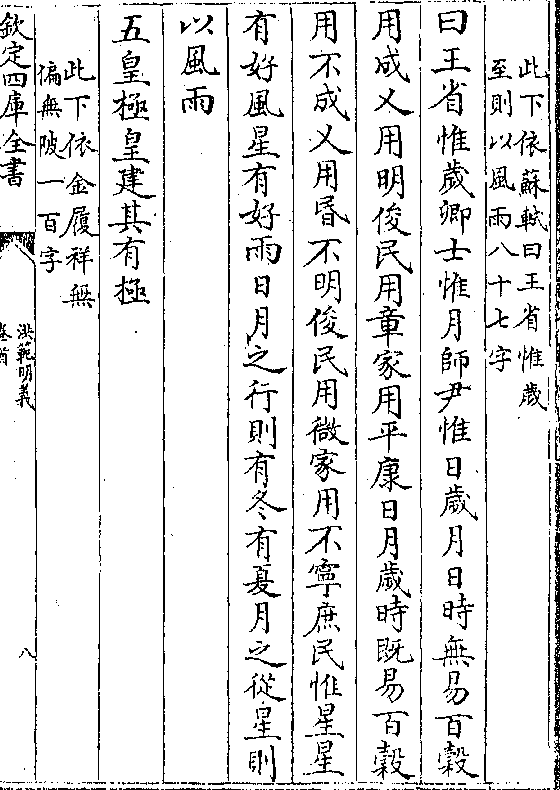 此下依蘇軾曰王省惟歲
至則以風雨八十七字
曰王省惟歲卿士惟月師尹惟日歲月日時無易百穀
用成乂用明俊民用章家用平康日月歲時既易百穀
用不成乂用昬不明俊民用微家用不寧庶民惟星星
有好風星有好雨日月之行則有冬有夏月之從星則
以風雨
五皇極皇建其有極
此下依金履祥無
偏無陂一百字
欽定四庫全書
洪範明義
卷首
八